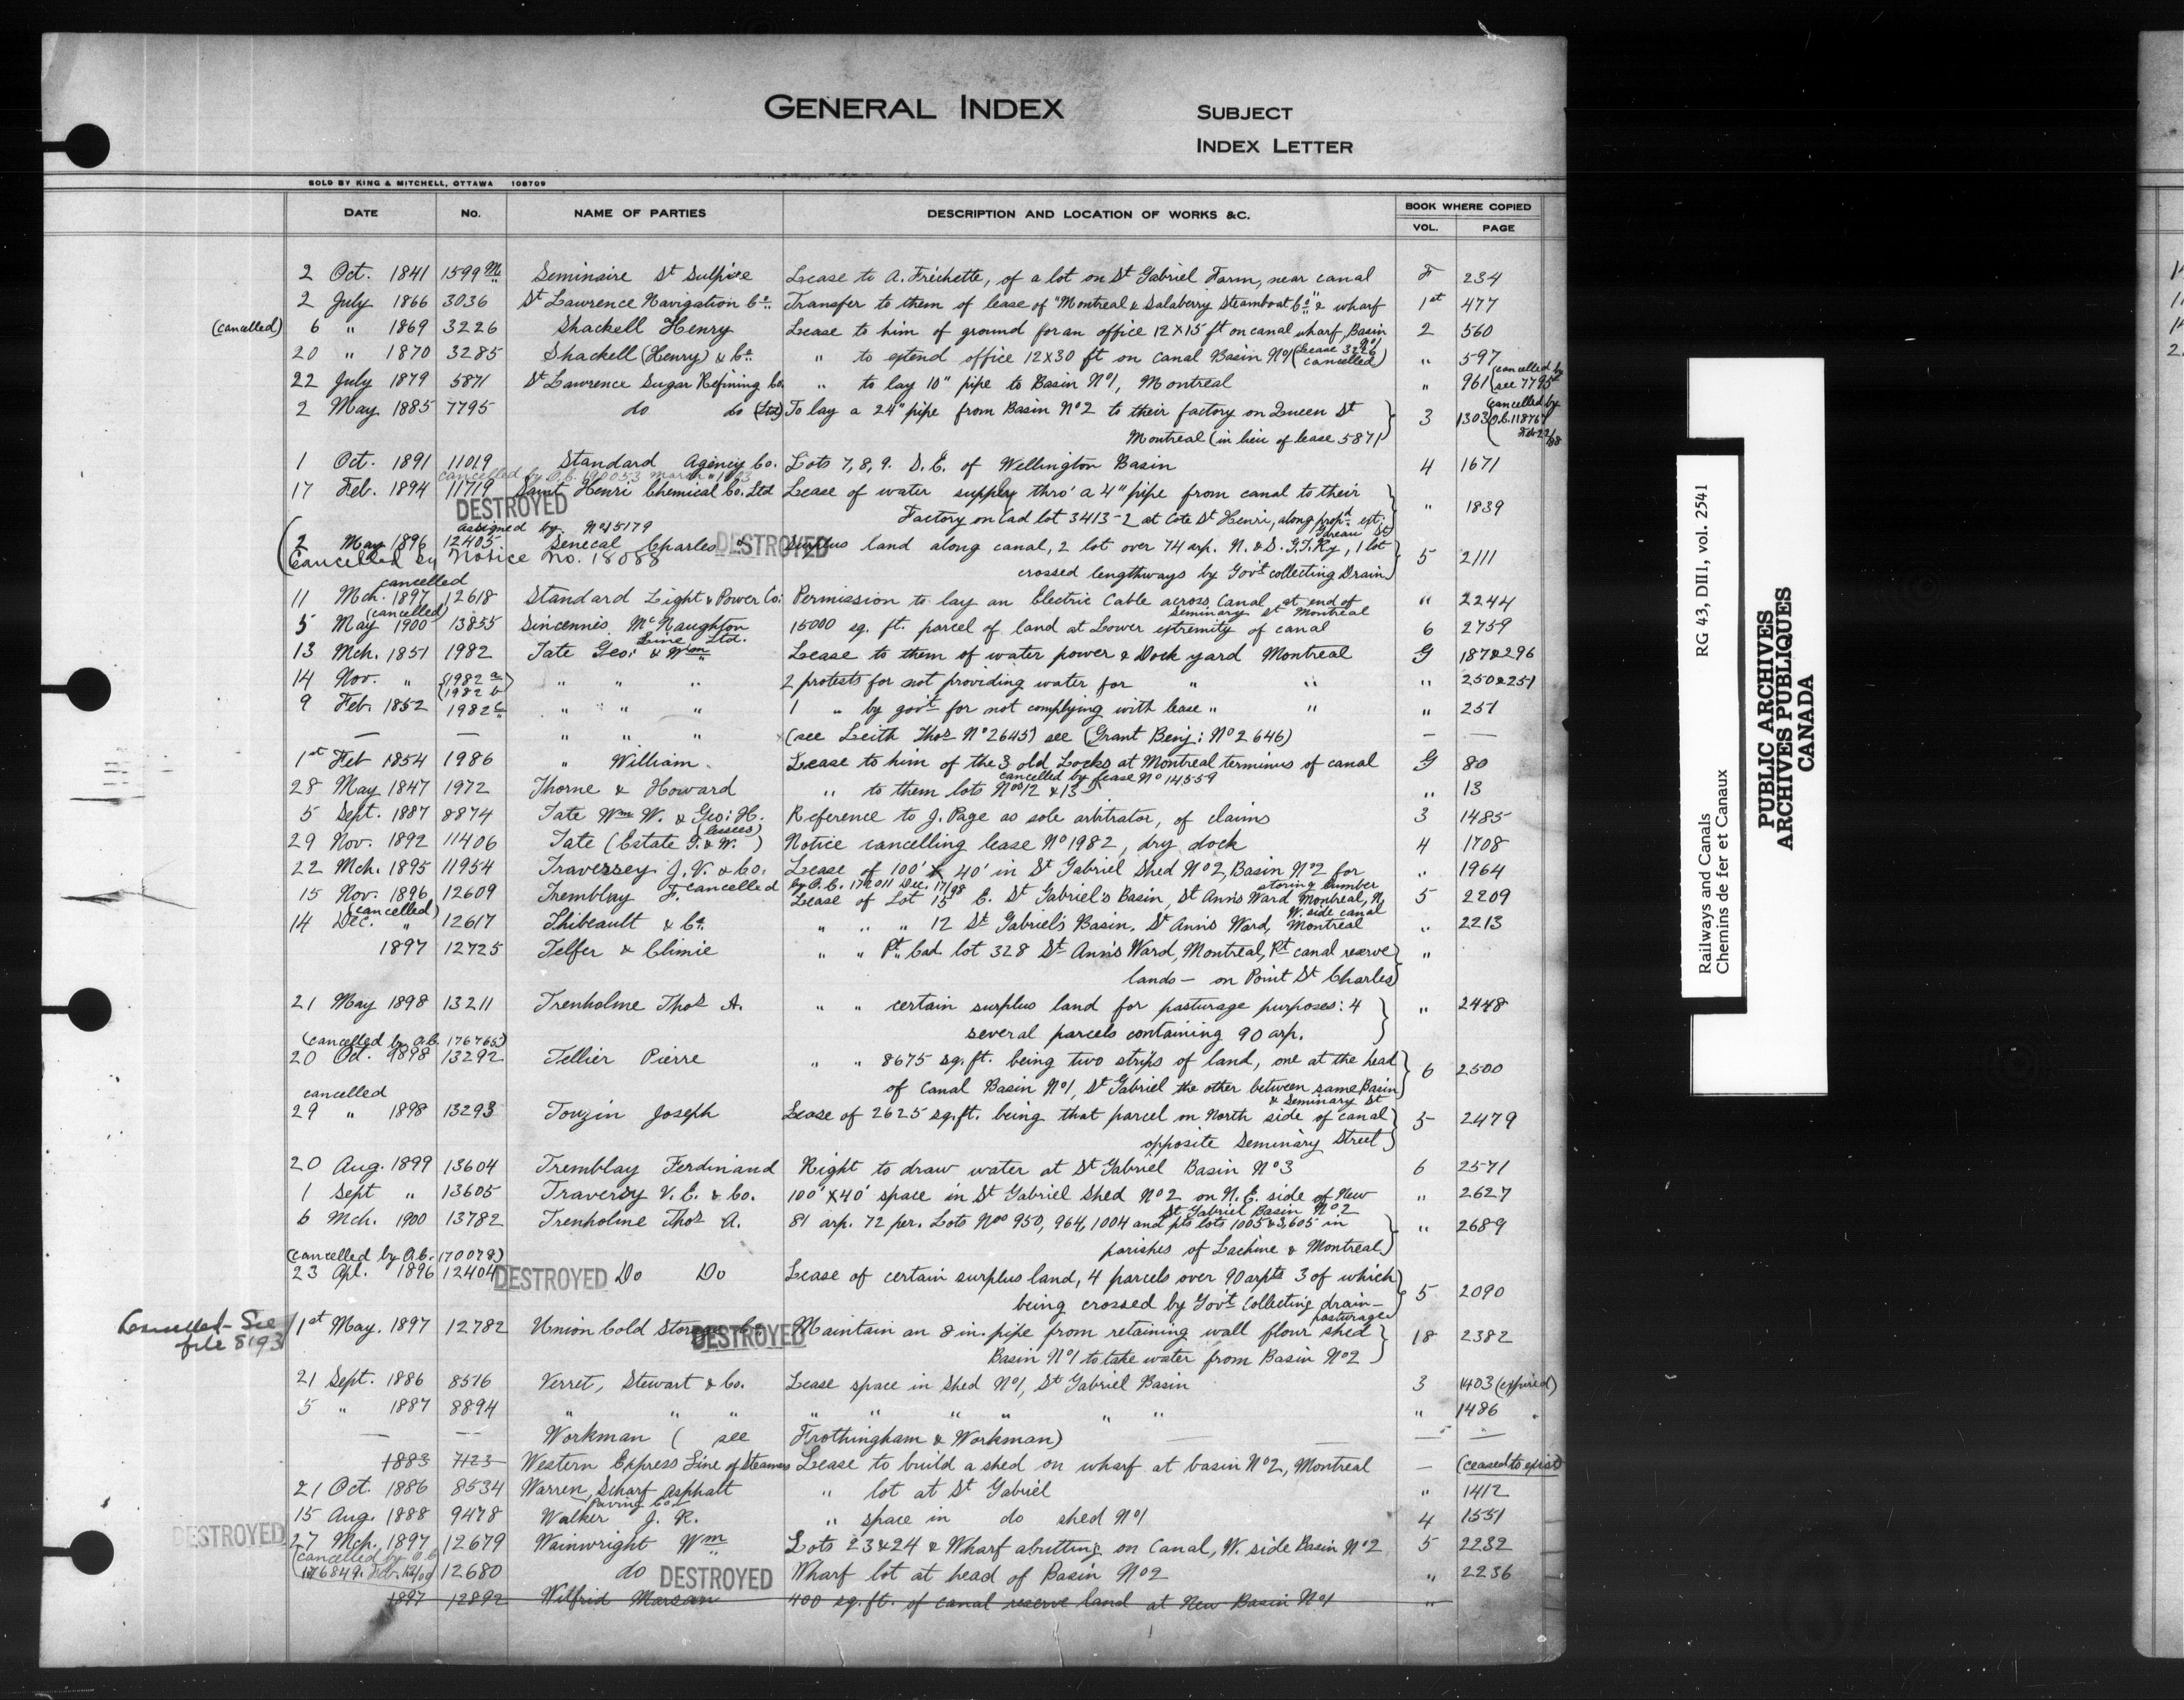 GENERAL INDEX
SUBJECT
INDEX LETTER
SOLD BY KING & MITCHELL, OTTAWA 108709
DATE No. NAME OF PARTIES DESCRIPTION AND LOCATION OF WORKS &C. BOOK WHERE COPIED
VOL. PAGE
2 Oct. 1841 1599 Seminaire St Sulpice Lease to A. Fréchette, of a lot on St Gabriel Farm, near canal F 234
2 July 1866 3036 St Lawrence Navigation Co. Transfer to them of lease of "Montreal & Salaberry Steamboat Co." & wharf 1st 477
(cancelled) 6 " 1869 3226 Shackell Henry Lease to him of ground for an office 12X15 ft on canal wharf, Basin No1 2 560
20 " 1870 3285 Shackell (Henry) & Co. " to extend office 12X30 ft on canal Basin No1 (Lease 3226 cancelled) " 597
22 July 1879 5871 St Lawrence Sugar Refining Co. " to lay 10" pipe to Basin No1, Montreal " 961 (cancelled by see 7795)
2 May 1885 7795 do do (Ltd) To lay a 24" pipe from Basin No2 to their factory on Queen St 3 1303 (cancelled by O.C. 118767
Montreal (in lieu of lease 5871)
1 Oct. 1891 11019 Standard Agency Co. Lots 7, 8, 9. S.E. of Wellington Basin 4 1671
cancelled by O.C.
17 Feb. 1894 11719 Saint Henri Chemical Co. Ltd Lease of water supply thro' a 4" pipe from canal to their " 1839
DESTROYED Factory on Cad lot 3413-2 at Cote St Henri, along propd ext:
assigned by No15179
2 May 1896 12405 Senecal Charles DESTROYED Surplus land along canal, 2 lot over 74 arp. N. & S. G.T.Ry, 1 lot 5 2111
(Cancelled by Notice No. 18088 crossed lengthways by Gov't collecting Drain)
cancelled
11 Mch. 1897 12618 Standard Light & Power Co: Permission to lay an Electric Cable across Canal at end of " 2244
Seminary St Montreal
(cancelled)
5 May 1900 13855 Sincennes McNaughton Line Ltd. 15000 sq. ft. parcel of land at Lower extremity of canal 6 2759
13 Mch. 1851 1982 Tate Geo: & Wm Lease to them of water power & Dock yard Montreal G 187&296
14 Nov. " (1982 a) (1982 b) " " " 2 protests for not providing water for " " " 250&251
9 Feb. 1852 1982 c " " " 1 " by gov't for not complying with lease " " " 251
— — " " " (see Leith Thos No2645) see (Grant Benj: No2646) — —
1st Feb 1854 1986 " William. Lease to him of the 3 old Locks at Montreal terminus of canal G 80
cancelled by lease No 14559
28 May 1847 1972 Thorne & Howard " to them lots Nos12 &13 " 13
5 Sept. 1887 8874 Tate Wm W. & Geo: H. Reference to J. Page as sole arbitrator, of claims 3 1485
29 Nov. 1892 11406 Tate (Estate G. & W. (lessees)) Notice cancelling lease No1982, dry dock 4 1708
22 Mch. 1895 11954 Traversey J.V. & Co. Lease of 100' X 40' in St Gabriel Shed No2, Basin No2 for " 1964
storing lumber
cancelled by O.C. 172011 Dec. 17/98
15 Nov. 1896 12609 Tremblay F. Lease of Lot 15 E. St Gabriel's Basin, St Ann's Ward Montreal, N. 5 2209
W. side canal
(cancelled)
14 Dec. " 12617 Thibeault & Co. " " " 12 St Gabriel's Basin, St Ann's Ward, Montreal " 2213
1897 12725 Telfer & Climie " " Pt. Cad. lot 328 St Ann's Ward, Montreal, Pt canal reserve "
lands — on Point St Charles
21 May 1898 13211 Trenholme Thos A. " " certain surplus land for pasturage purposes: 4 " 2448
several parcels containing 90 arp.
(cancelled by O.C. 176765)
20 Oct. 1898 13292 Tellier Pierre " " 8675 sq. ft. being two strips of land, one at the head 6 2500
of Canal Basin No1, St Gabriel the other between same Basin
& Seminary St
cancelled
29 " 1898 13293 Touzin Joseph Lease of 2625 sq. ft. being that parcel on North side of canal 5 2479
opposite Seminary Street
20 Aug. 1899 13604 Tremblay Ferdinand Right to draw water at St Gabriel Basin No3 6 2571
1 Sept " 13605 Traversy V.E. & Co. 100' X40' space in St Gabriel Shed No2 on N.E. side of New " 2627
St Gabriel Basin No2
6 Mch. 1900 13782 Trenholme Thos A. 81 arp. 72 per. Lots Nos 950, 964, 1004 and pts lots 1005 & 3605 in " 2689
parishes of Lachine & Montreal
(cancelled by O.C. 170078)
23 Apl. 1896 12404 DESTROYED Do Do Lease of certain surplus land, 4 parcels over 90 arpts 3 of which 5 2090
being crossed by Gov't Collecting drain—
pasturage
Cancelled - See file 8193 1st May. 1897 12782 Union Cold Storage Co. DESTROYED Maintain an 8 in. pipe from retaining wall flour shed 18 2382
Basin No1 to take water from Basin No2
21 Sept. 1886 8516 Verret, Stewart & Co. Lease space in Shed No1, St Gabriel Basin 3 1403 (expired)
5 " 1887 8894 " " " " " " " " " " 1486 "
— — Workman (see Frothingham & Workman) — —
1883 7123 Western Express Line of Steamers Lease to build a shed on wharf at basin No2, Montreal — (ceased to exist)
21 Oct. 1886 8534 Warren, Scharf Asphalt Paving Co. " lot at St Gabriel " 1412
15 Aug. 1888 9478 Walker J. R. " space in do shed No1 4 1551
DESTROYED 27 Mch. 1897 12679 Wainwright Wm Lots 23&24 & Wharf abutting on Canal, W. side Basin No2 5 2232
(cancelled by O.C.
12680 do DESTROYED Wharf lot at head of Basin No2 " 2236
1897 12892 Wilfrid Marsan 400 sq. ft. of canal reserve land at New Basin No1 "
RG 43, DII1, vol. 2541
Railways and Canals
Chemins de fer et Canaux
PUBLIC ARCHIVES
ARCHIVES PUBLIQUES
CANADA